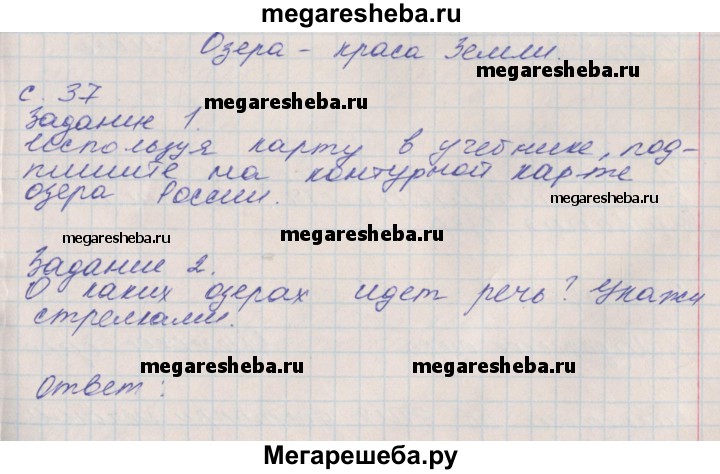 megaresheba.ru
Озера - краса Земли.
megaresheba.ru
с. 37
megaresheba.ru
Задание 1.
Используя карту в учебнике, под-
пишите на контурной карте
озера России.
megaresheba.ru
megaresheba.ru
megaresheba.ru
Задание 2.
О каких озерах идет речь? Укажи
стрелками.
megaresheba.ru
megaresheba.ru
Ответ:
Мегарешеба.ру